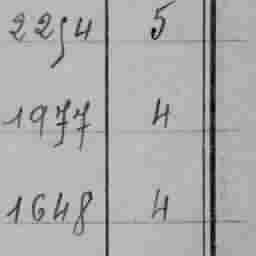 2254 5
1977 4
1648 4